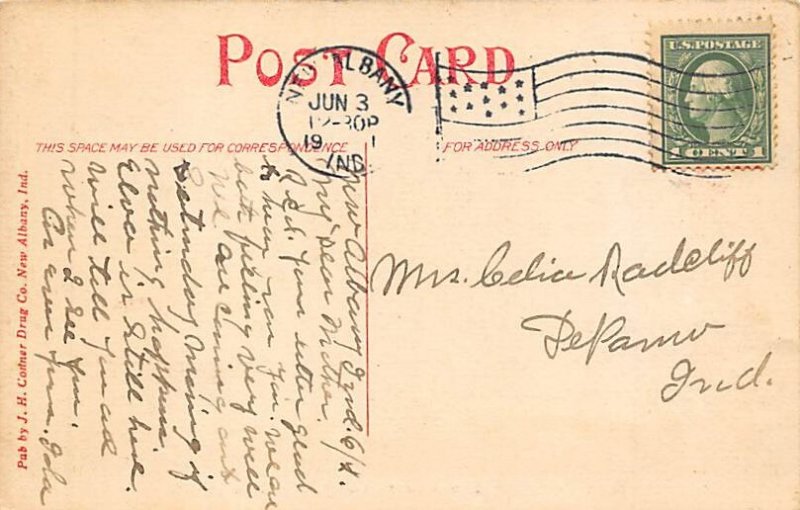 POST CARD
NEW ALBANY
JUN 3
12-30P
19 1
IND
U.S. POSTAGE
1 CENT 1
THIS SPACE MAY BE USED FOR CORRESPONDENCE
FOR ADDRESS ONLY
New Albany Ind. 6/2.
My Dear Mother.
Rcd. Your letter glad
to hear from You. We are
both feeling very well
We are coming out
Saturday Morning if
nothing happens.
Elver is still here.
Will tell You all
When I see You.
As ever Yours. Iola
Mrs. Celia Radcliff
DePauw
Ind.
Pub by J. H. Conner Drug Co. New Albany, Ind.